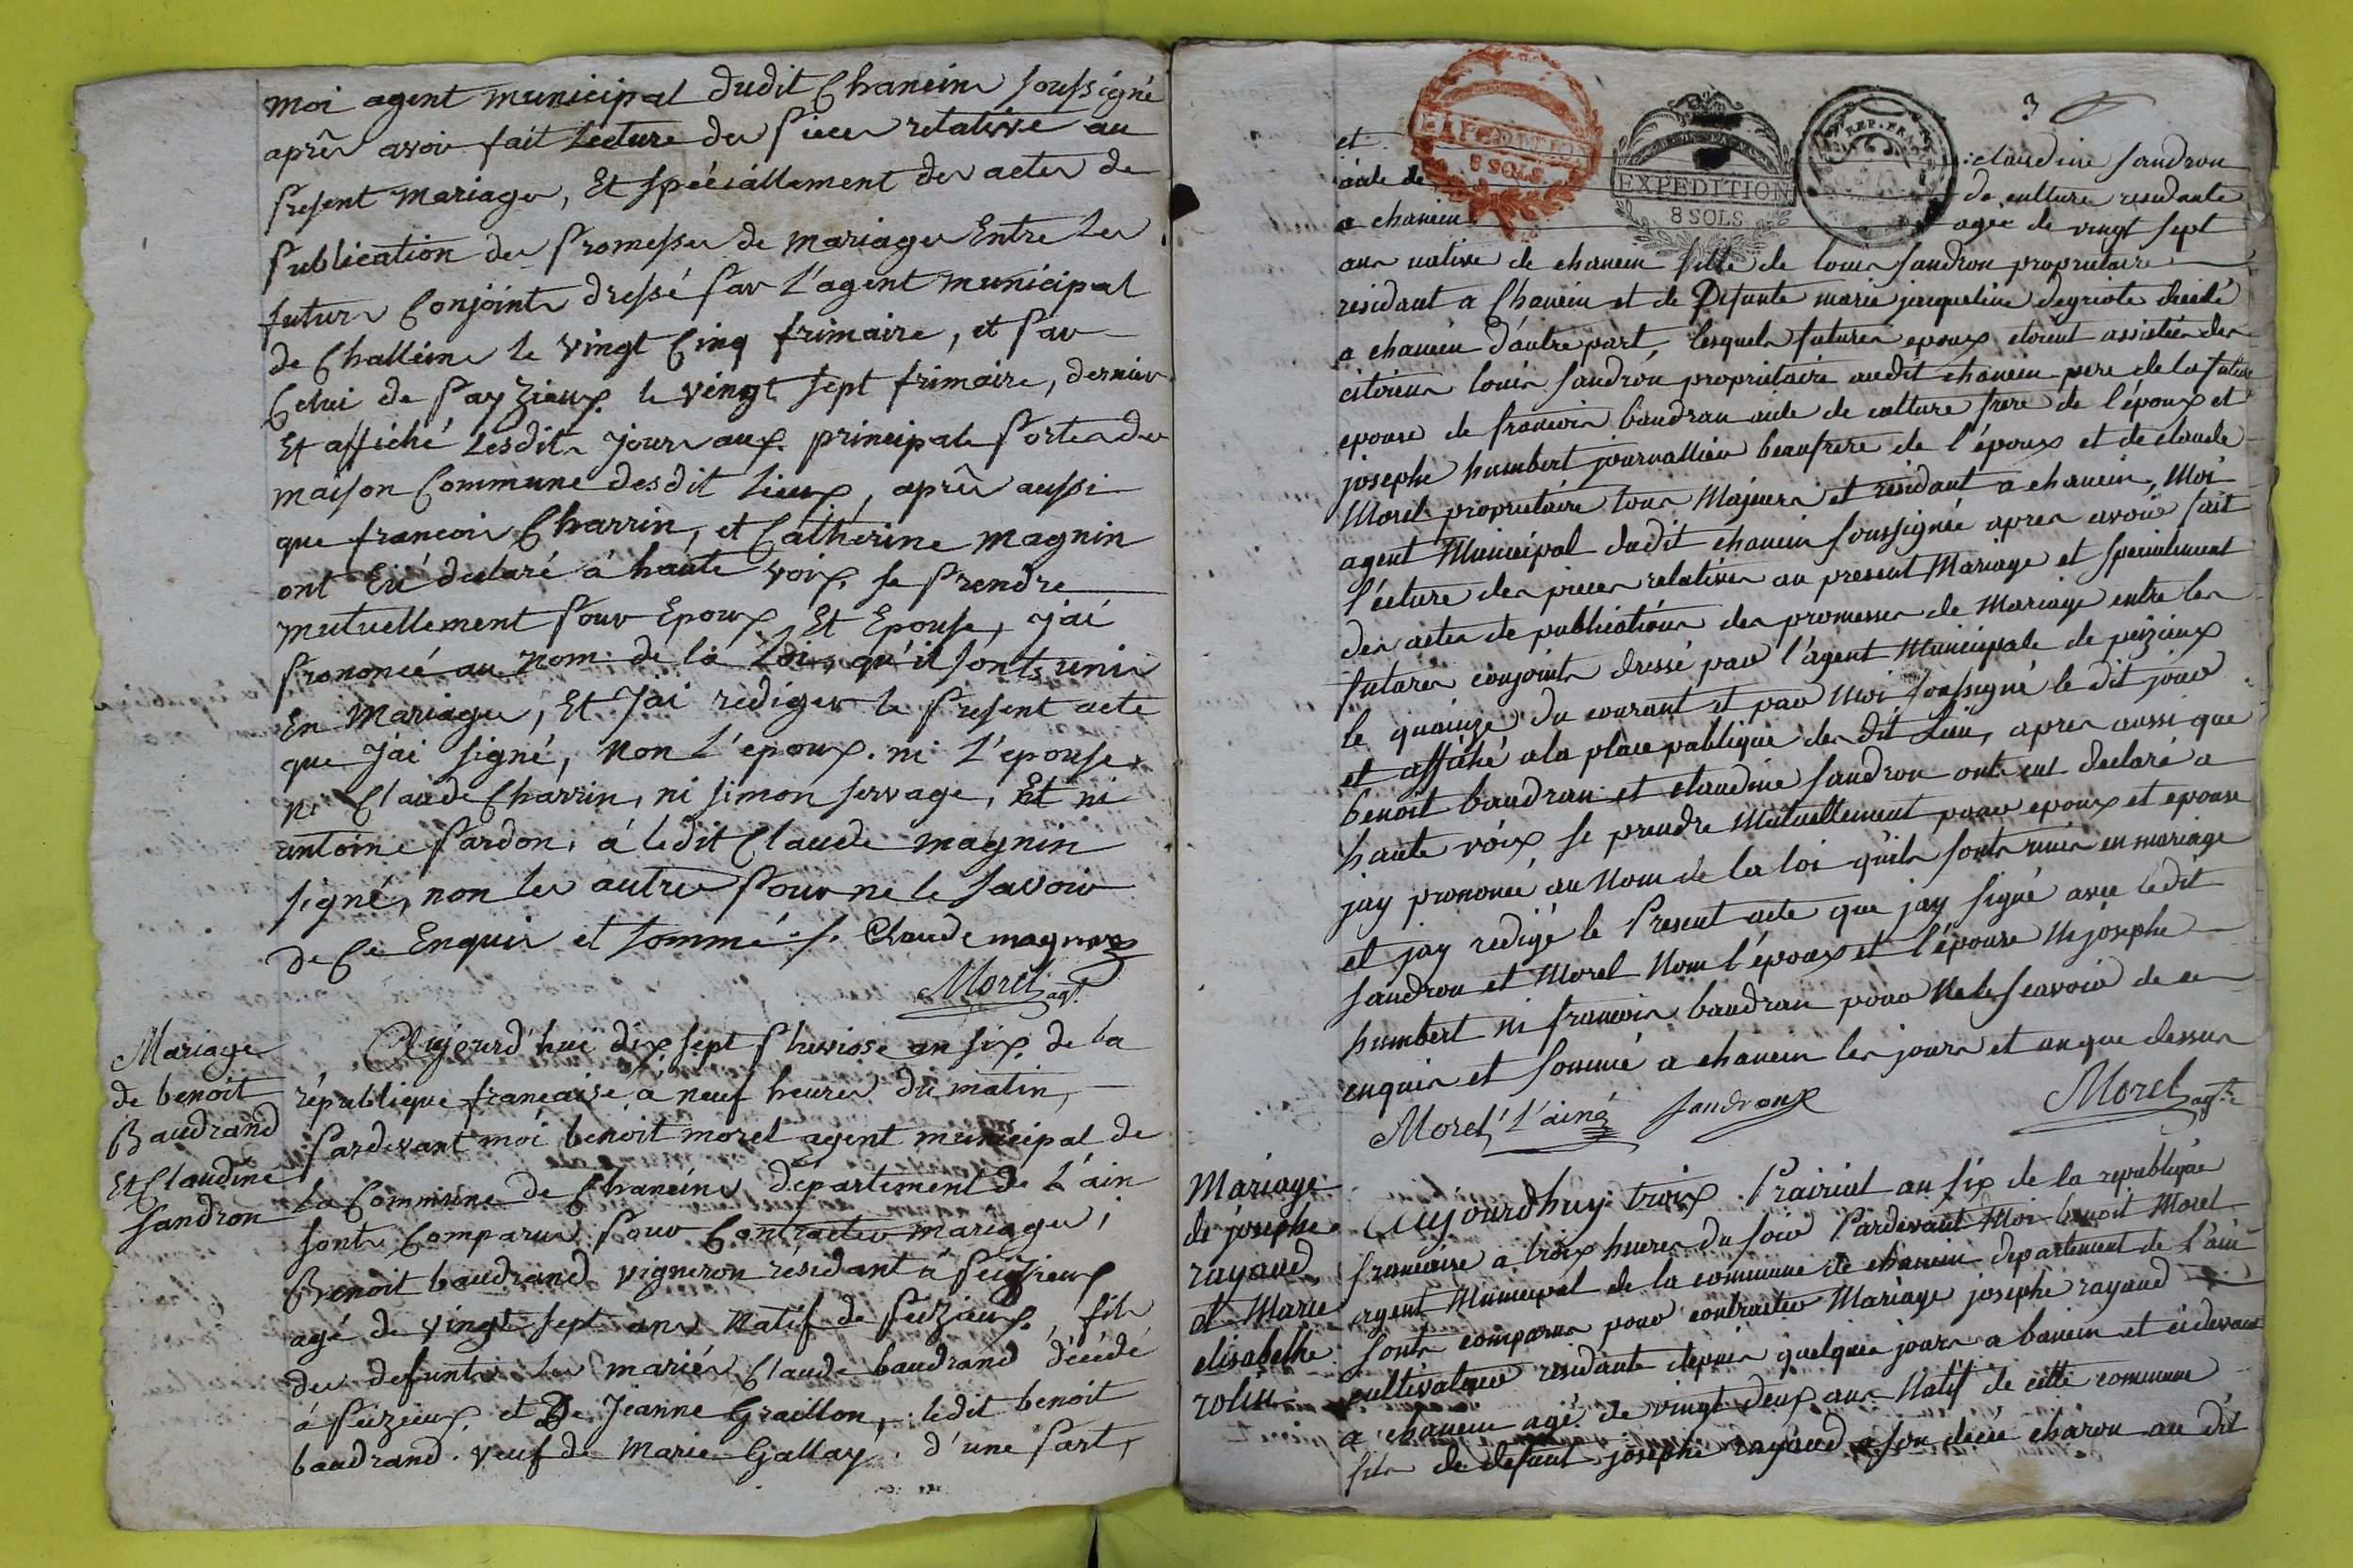 moi agent municipal dudit Chanein soussigné
après avoir fait Lecture des pieces relative au
present mariage, Et spéciallement des actes de
publication des promesses de mariage Entre Les
futurs Conjoints dressé par L'agent municipal
de Challeins le vingt Cinq frimaire, et par
Celui de payzieux le vingt sept frimaire, dernier
Et affiché Lesdits jours aux principale portes des
maison Commune desdit Lieux, après aussi
que francois Charrin, et Catherine magnin
ont Eu declaré à haute voix se prendre
mutuellement pour Epoux, Et Epouse, j'ai
prononcé au nom de la Loi, qu'il sonts unis
En mariage, Et j'ai rediger le present acte
que j'ai signé, non L'epoux ni L'epouse,
ni Claude Charrin, ni simon servage, Et ni
antoine pardon, à ledit Claude magnin
signé, non les autres pour ne le savoir
de Ce Enquis et sommé ./. Claude magnin
Morel agt.
Mariage
de benoit
Baudrand
Et Claudine
sandron
Aujourd'hui dix sept pluviose an six de la
république francaise à neuf heures du matin,
pardevant moi benoit morel agent municipal de
la Commune de Chaneins département de L'ain
sonts Comparus pour Contracter mariage,
Benoit baudrand vigneron residant à peizieux
agé de vingt sept ans natif de peizieux, fils
des defunts les mariés Claude baudrand décédé
à peizieux et De Jeanne Graillon, ledit benoit
baudrand veuf de marie Gallay, d'une part,
3
EXPEDITION
8 SOLS
EXPEDITION
8 SOLS
REP. FRA
et claudine sandron
aide de de culture residante
a chanein agee de vingt sept
ans native de chanein fille de louis sandron proprietaire
residant a Chanein et de Defunte marie jacqueline degriote decedé
a chanein d'autre part, lesquels futures epoux etoient assistés des
citoiens louis sandron proprietaire audit chanein pere de la future
epouse de francois baudran aide de culture frere de l'époux et
josephe humbert journallier beaufrere de l'époux et de claude
Morel proprietaire tous Majeurs et residant a chanein, Moi
agent Municipal dudit chanein soussignée apres avoir fait
l'ecture des pieces relatives au present Mariage et specialement
des actes de publications des promesses de Mariage entre les
futures conjoints dressé par l'agent Municipale de peizieux
le quainze du courant et par Moi soussigné le dit jour
et affiché ala place publique des dit Lieu, apres aussi que
benoit baudran et claudine sandron onts eut declaré a
haute voix se prendre Mutuellement pour epoux et epouse
jay prononcé au Nom de la loi qu'ils sonts unies en mariage
et jay redigé le Present acte que jay signé avec ledit
sandron et Morel Non l'époux et l'épouse Ni josephe
humbert ni francois baudran pour Ne le scavoir de ce
enquis et sommé a chanein les jours et an que dessus
Morel l'ainé sandron Morel agt.
Mariage
de josephe
rayaud
et Marie
elisabethe
rolin
Aujourdhuy troix Prairial an six de la republique
francaise a troix heures du soir Pardevant Moi benoit Morel
agent Municipal de la commune de chanein departement de l'ain
sonts comparus pour contracter Mariage josephe rayaud
cultivateur residante depuis quelques jours a banein et cidevant
a chanein agé de vingt deux ans Natif de cette commune
fils de defunt josephe rayaud a son décée charon au dit